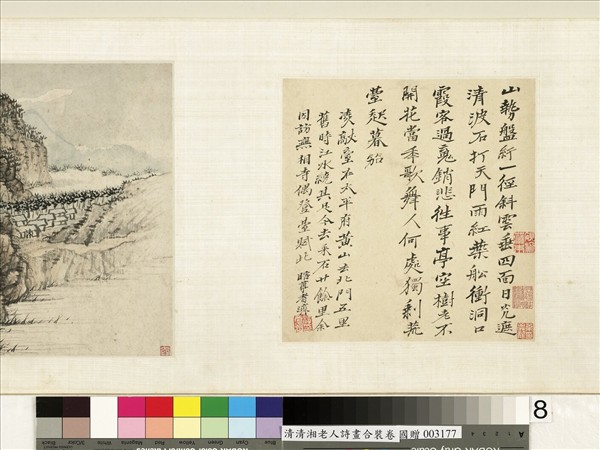 山勢盤紆一徑斜雲垂四面日光遮
清波石打天門雨紅葉舩衝洞口
霞客過魂銷悲往事亭空樹老不
開花當年歌舞人何處獨剩荒
臺起暮鴉
凌歊臺在太平府黃山去北門五里
舊時江水繞其足今去采石廿餘里余
因訪無相寺偶登臺賦此 瞎尊者濟
8
清清湘老人詩畫合裝卷 國贈 003177
Black
3/Color
White
Magenta
Red
Yellow
Green
Cyan
Blue